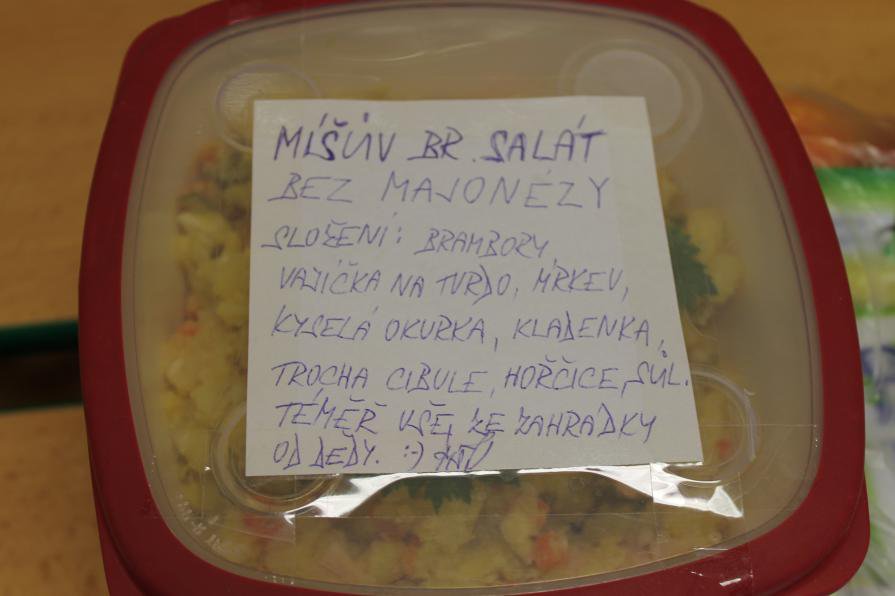 MÍŠŮV BR. SALÁT
BEZ MAJONÉZY
SLOŽENÍ: BRAMBORY,
VAJÍČKA NA TVRDO, MRKEV,
KYSELÁ OKURKA, KLADENKA,
TROCHA CIBULE, HOŘČICE, SŮL.
TÉMĚŘ VŠE ZE ZAHRÁDKY
OD DĚDY. :-)